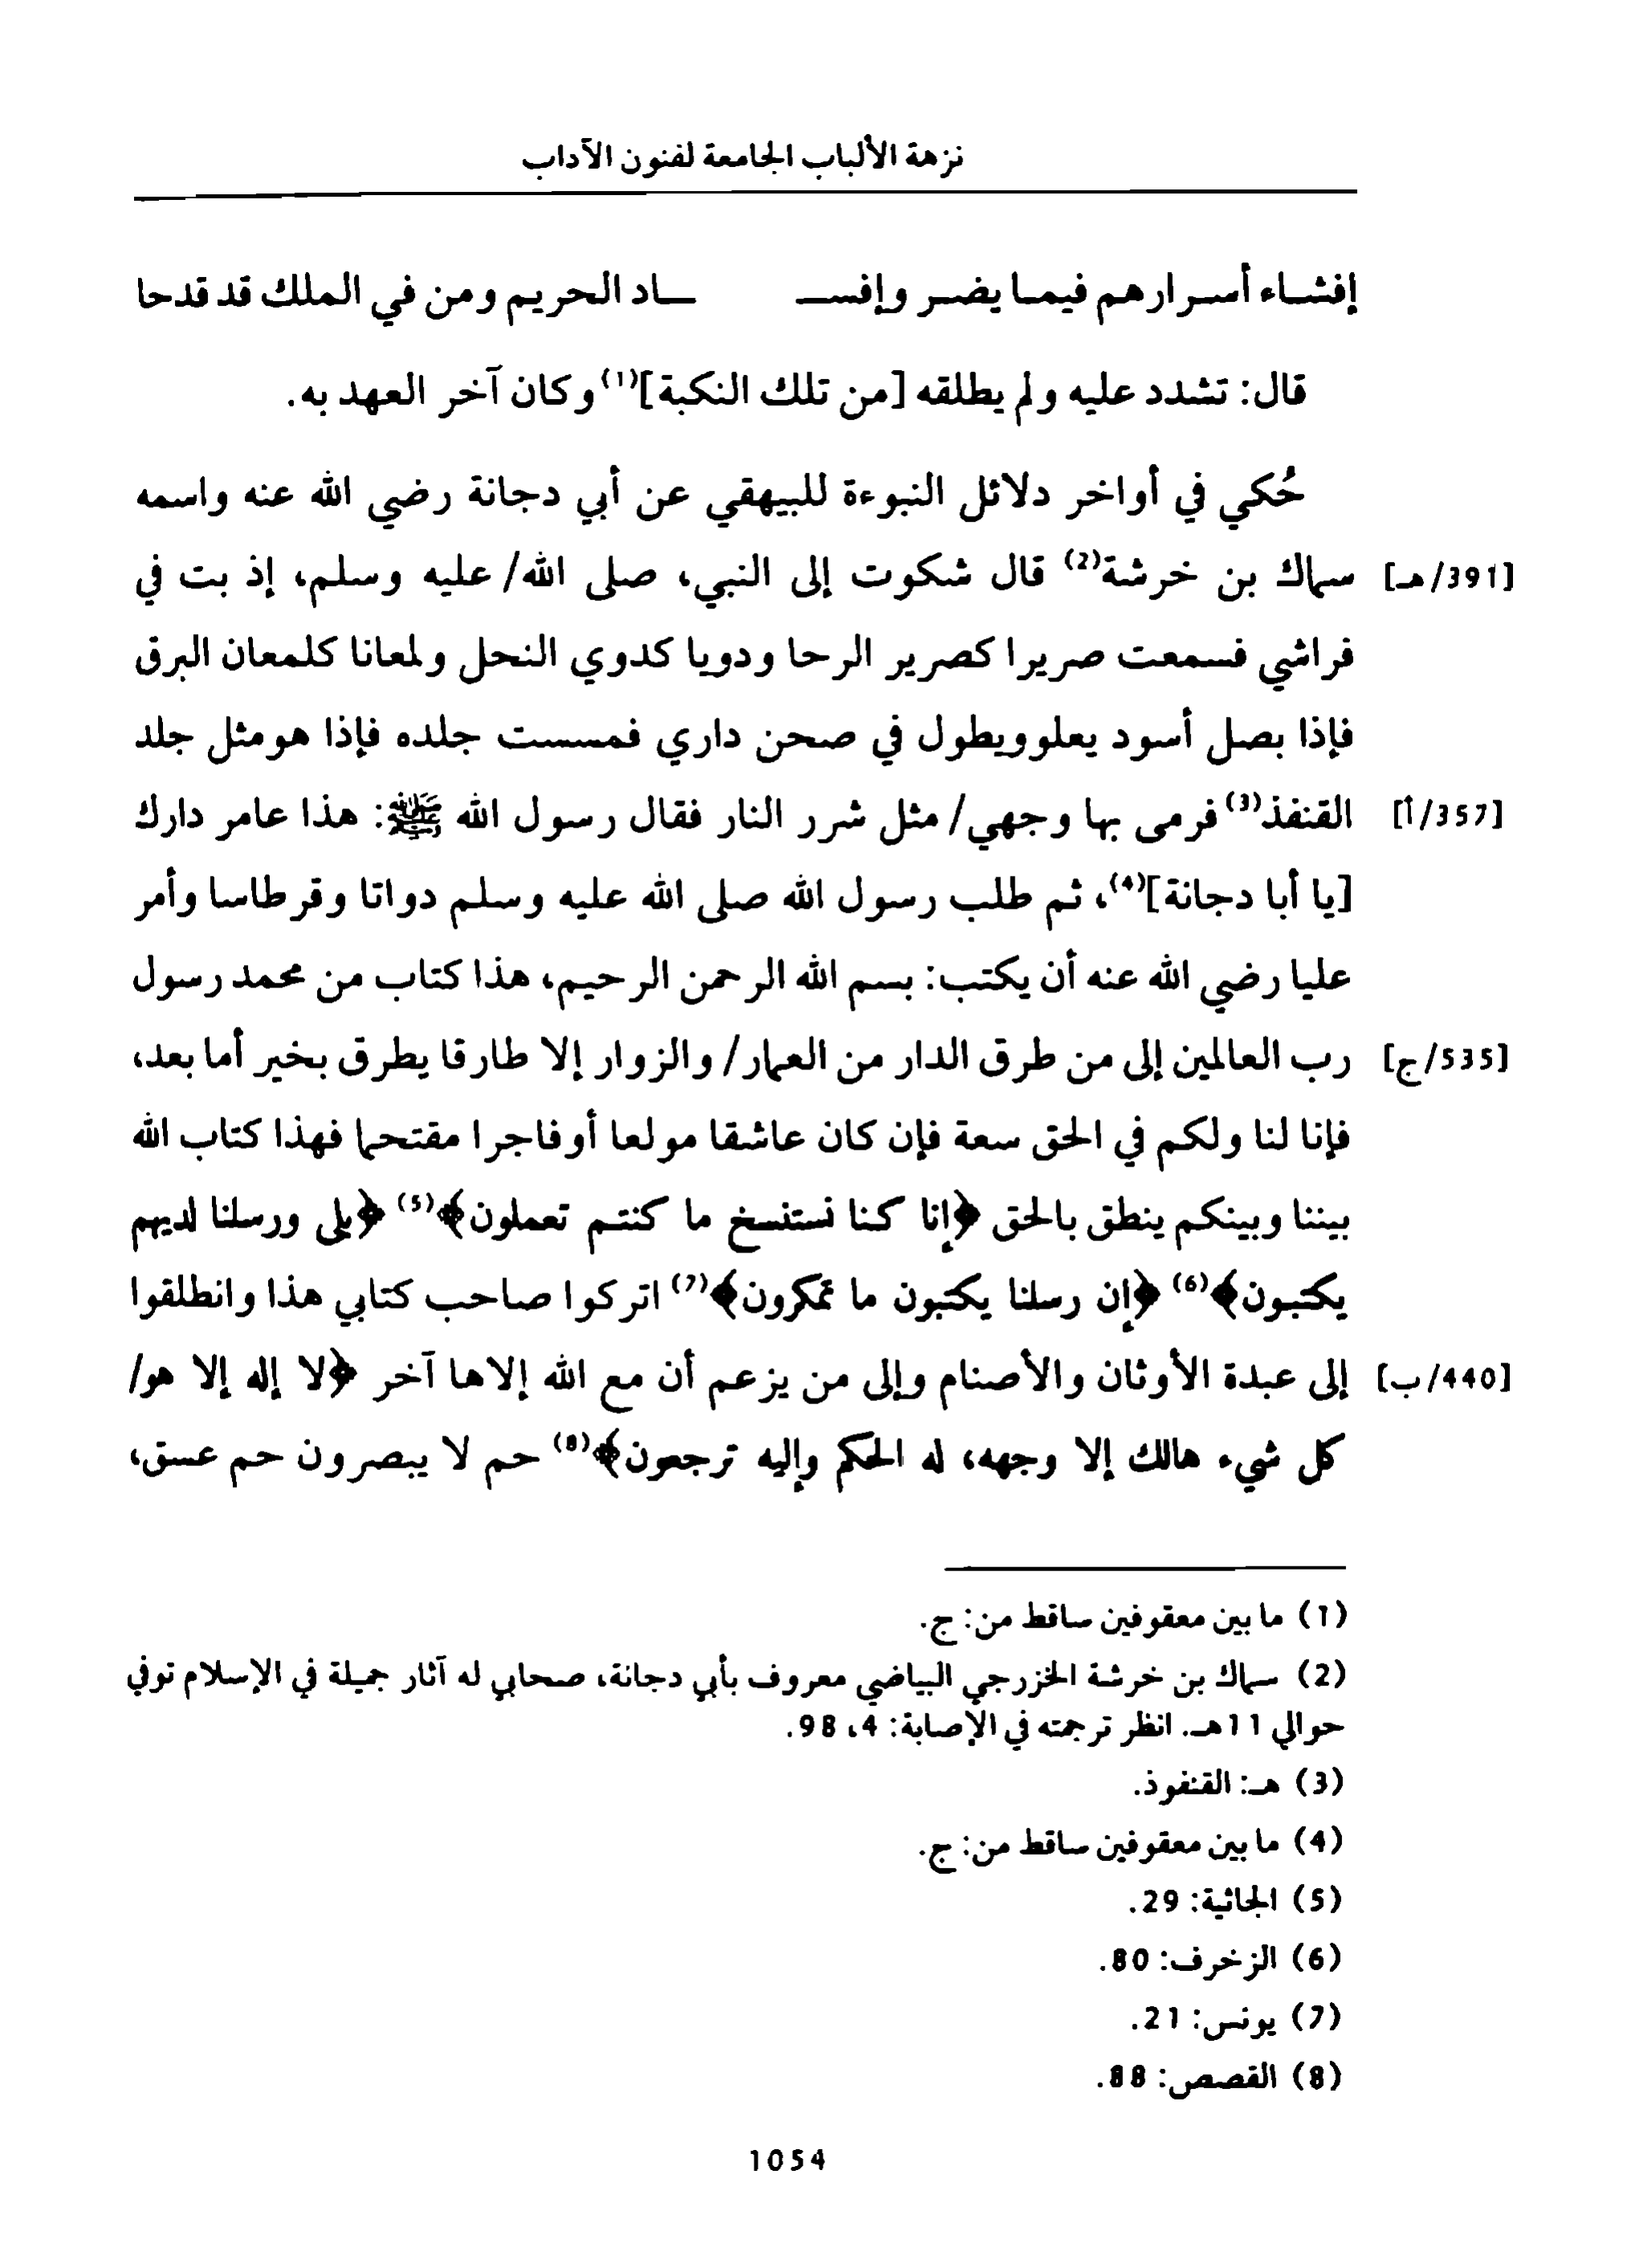 نزهة الألباب الجامعة لفنون الآداب
إفشاء أسرارهم فيما يضر وإفســ ــاد الحريم ومن في الملك قد قدحا
قال: تشدد عليه ولم يطلقه [من تلك النكبة]⁽¹⁾ وكان آخر العهد به.
حُكي في أواخر دلائل النبوءة للبيهقي عن أبي دجانة رضي الله عنه واسمه
[391/هـ] سماك بن خرشة⁽²⁾ قال شكوت إلى النبي، صلى الله/ عليه وسلم، إذ بت في
فراشي فسمعت صريرا كصرير الرحا ودويا كدوي النحل ولمعانا كلمعان البرق
فإذا بصل أسود يعلو ويطول في صحن داري فمسست جلده فإذا هو مثل جلد
[357/أ] القنفذ⁽³⁾ فرمى بها وجهي/ مثل شرر النار فقال رسول الله ﷺ: هذا عامر دارك
[يا أبا دجانة]⁽⁴⁾، ثم طلب رسول الله صلى الله عليه وسلم دواتا وقرطاسا وأمر
عليا رضي الله عنه أن يكتب: بسم الله الرحمن الرحيم، هذا كتاب من محمد رسول
[535/ج] رب العالمين إلى من طرق الدار من العمار/ والزوار إلا طارقا يطرق بخير أما بعد،
فإنا لنا ولكم في الحق سعة فإن كان عاشقا مولعا أو فاجرا مقتحما فهذا كتاب الله
بيننا وبينكم ينطق بالحق ﴿إنا كنا نستنسخ ما كنتم تعملون﴾⁽⁵⁾ ﴿بلى ورسلنا لديهم
يكتبون﴾⁽⁶⁾ ﴿إن رسلنا يكتبون ما تمكرون﴾⁽⁷⁾ اتركوا صاحب كتابي هذا وانطلقوا
[440/ب] إلى عبدة الأوثان والأصنام وإلى من يزعم أن مع الله إلاها آخر ﴿لا إله إلا هو/
كل شيء هالك إلا وجهه، له الحكم وإليه ترجعون﴾⁽⁸⁾ حم لا يبصرون حم عسق،
(1) ما بين معقوفين ساقط من: ج.
(2) سماك بن خرشة الخزرجي البياضي معروف بأبي دجانة، صحابي له آثار جميلة في الإسلام توفي
حوالي 11هـ. انظر ترجمته في الإصابة: 4، 98.
(3) هـ: القنفوذ.
(4) ما بين معقوفين ساقط من: ج.
(5) الجاثية: 29.
(6) الزخرف: 80.
(7) يونس: 21.
(8) القصص: 88.
1054